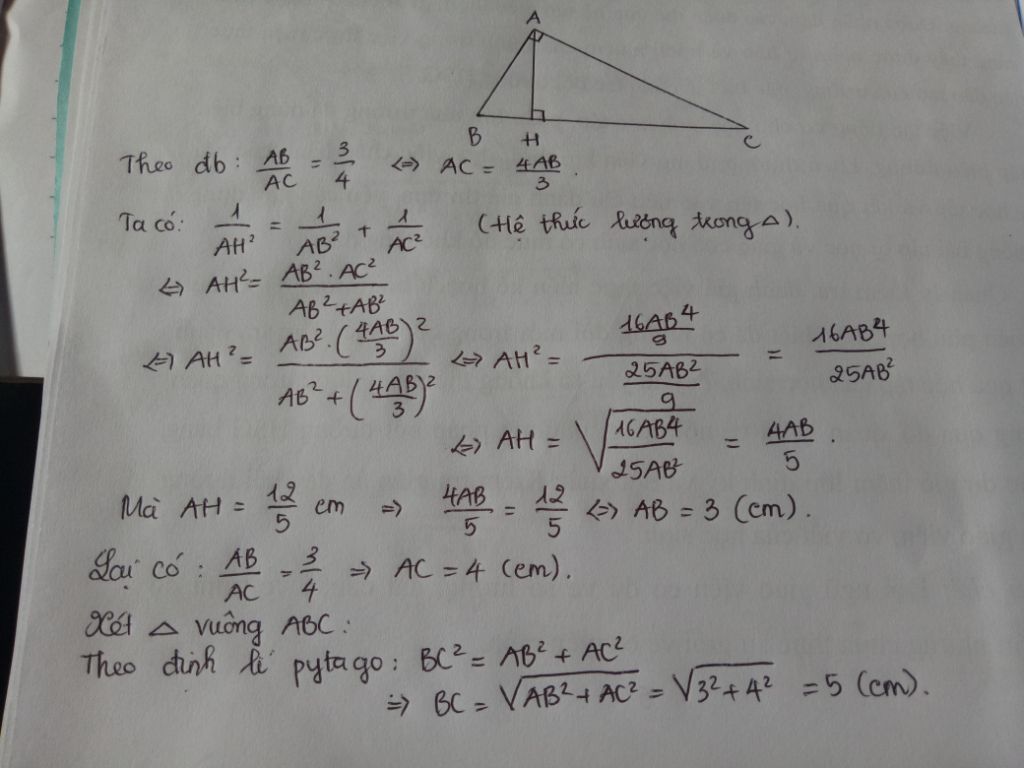 A
B H C
Theo đb: AB/AC = 3/4 ⇔ AC = 4AB/3.
Ta có: 1/AH² = 1/AB² + 1/AC² (Hê thức lượng trong Δ).
⇔ AH² = AB² . AC² / AB² + AB²
⇔ AH² = AB² . (4AB/3)² / AB² + (4AB/3)² ⇔ AH² = 16AB⁴/9 / 25AB²/9 = 16AB⁴/25AB²
⇔ AH = √16AB⁴/25AB² = 4AB/5.
Mà AH = 12/5 cm ⇒ 4AB/5 = 12/5 ⇔ AB = 3 (cm).
Lại có: AB/AC = 3/4 ⇒ AC = 4 (cm).
Xét Δ vuông ABC:
Theo định lí pytago: BC² = AB² + AC²
⇒ BC = √AB² + AC² = √3² + 4² = 5 (cm).